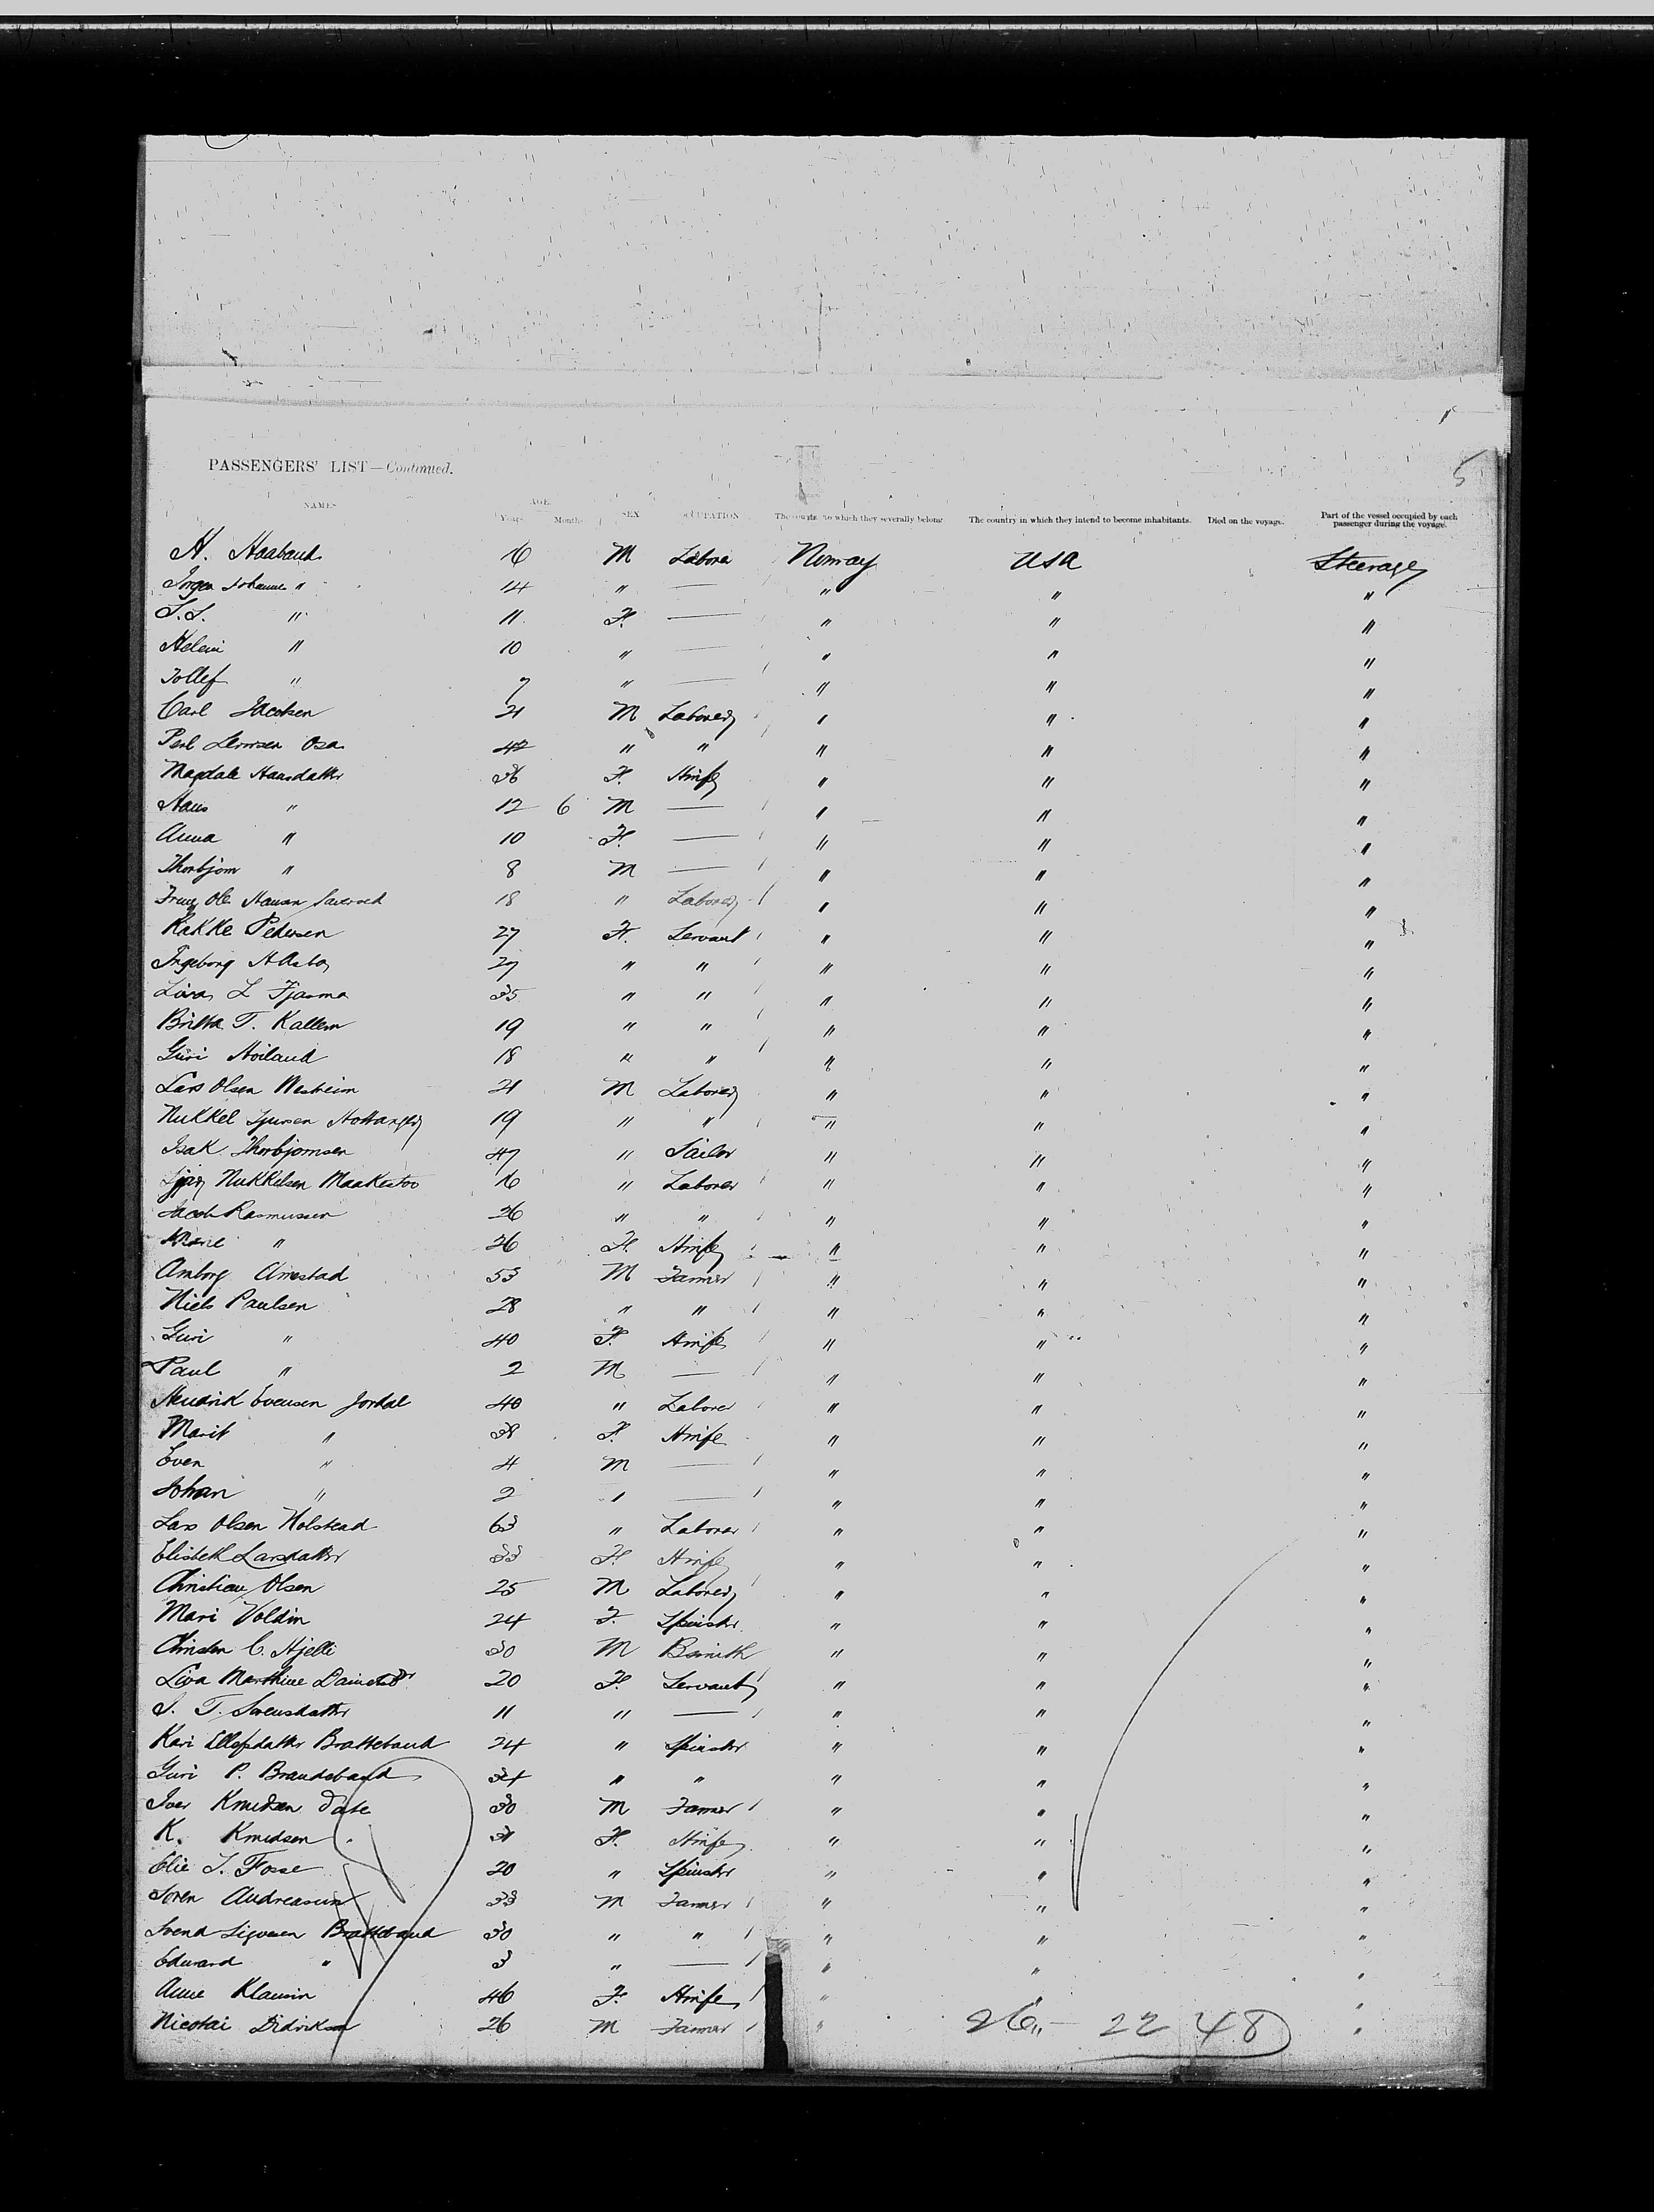 5
PASSENGERS' LIST—Continued.
NAMES AGE SEX OCCUPATION The country to which they severally belong The country in which they intend to become inhabitants. Died on the voyage. Part of the vessel occupied by each passenger during the voyage.
Years Months
H. Haaband 16 M Laborer Norway USA Steerage
Jorgen Johannes " 14 " — " " "
S.S. " 11 F. — " " "
Heleni " 10 " — " " "
Tollef " 7 " — " " "
Carl Jacobsen 21 M Laborer " " "
Peul Osa 42 " " " " "
Magdale Hansdatter 36 F. Hwife " " "
Hans " 12 6 M — " " "
Anna " 10 F. — " " "
Thorbjorn " 8 M — " " "
Ole Hansen 18 " Laborer " " "
Rakke Pedersen 27 F. Servant " " "
Ingeborg 27 " " " " "
L Fjasma 35 " " " " "
Britta T. Kallem 19 " " " " "
Guri Hoiland 18 " " " " "
Lars Olsen Westreim 21 M Laborer " " "
Nukkel Sjursen 19 " " " " "
Isak Thorbjornsen 47 " Sailor " " "
Nukkelsen Maakestoo 16 " Laborer " " "
Jacob Rasmussen 26 " " " " "
Marie " 26 F. Hwife " " "
Amborg Amestad 53 M Farmer " " "
Niels Paulsen 28 " " " " "
Guri " 40 F. Hwife " " "
Paul " 2 M — " " "
Hendrik Evensen Jordal 40 " Laborer " " "
Marit " 38 F. Hwife " " "
Even " 4 M — " " "
Johan " 2 " — " " "
Lars Olsen Holstead 63 " Laborer " " "
Elisbeth Larsdatter 33 F. Hwife " " "
Christian Olsen 25 M Laborer " " "
Mari Voldin 24 F. Spinster " " "
Christen C. Hjelli 30 M Bsmith " " "
Liva Marthine 20 F. Servant " " "
S. T. Svensdatter 11 " — " " "
Kari Ellefsdatter Brattebaud 24 " Spinster " " "
Guri P. Brandebaud 34 " " " " "
Iver Knudsen Dale 30 M Farmer " " "
K. Knudsen 31 F. Hwife " " "
Elie S. Fosse 20 " Spinster " " "
Soren Andreasen 33 M Farmer " " "
Svend Sigvesen Brattebaud 30 " " " " "
Edward " 3 " — " " "
Anne Klausin 46 F. Hwife " " "
Nicolai Didriksen 26 M Farmer " "
26 — 22 48